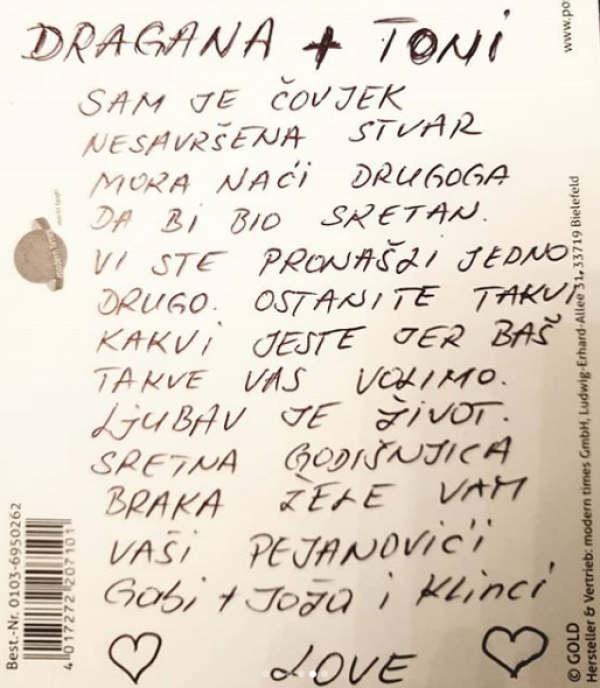 DRAGANA + TONI
SAM JE ČOVJEK
NESAVRŠENA STVAR
MORA NAĆI DRUGOGA
DA BI BIO SRETAN.
VI STE PRONAŠLI JEDNO
DRUGO. OSTANITE TAKVI
KAKVI JESTE JER BAŠ
TAKVE VAS VOLIMO.
LJUBAV JE ŽIVOT.
SRETNA GODIŠNJICA
BRAKA ŽELE VAM
VAŠI PEJANOVIĆI
Gabi + Joža i Klinci
LOVE
Best.-Nr. 0103-6950262
4 017272 207101
© GOLD
Hersteller & Vertrieb: modern times GmbH, Ludwig-Erhard-Allee 31, 33719 Bielefeld
www.po
modern times